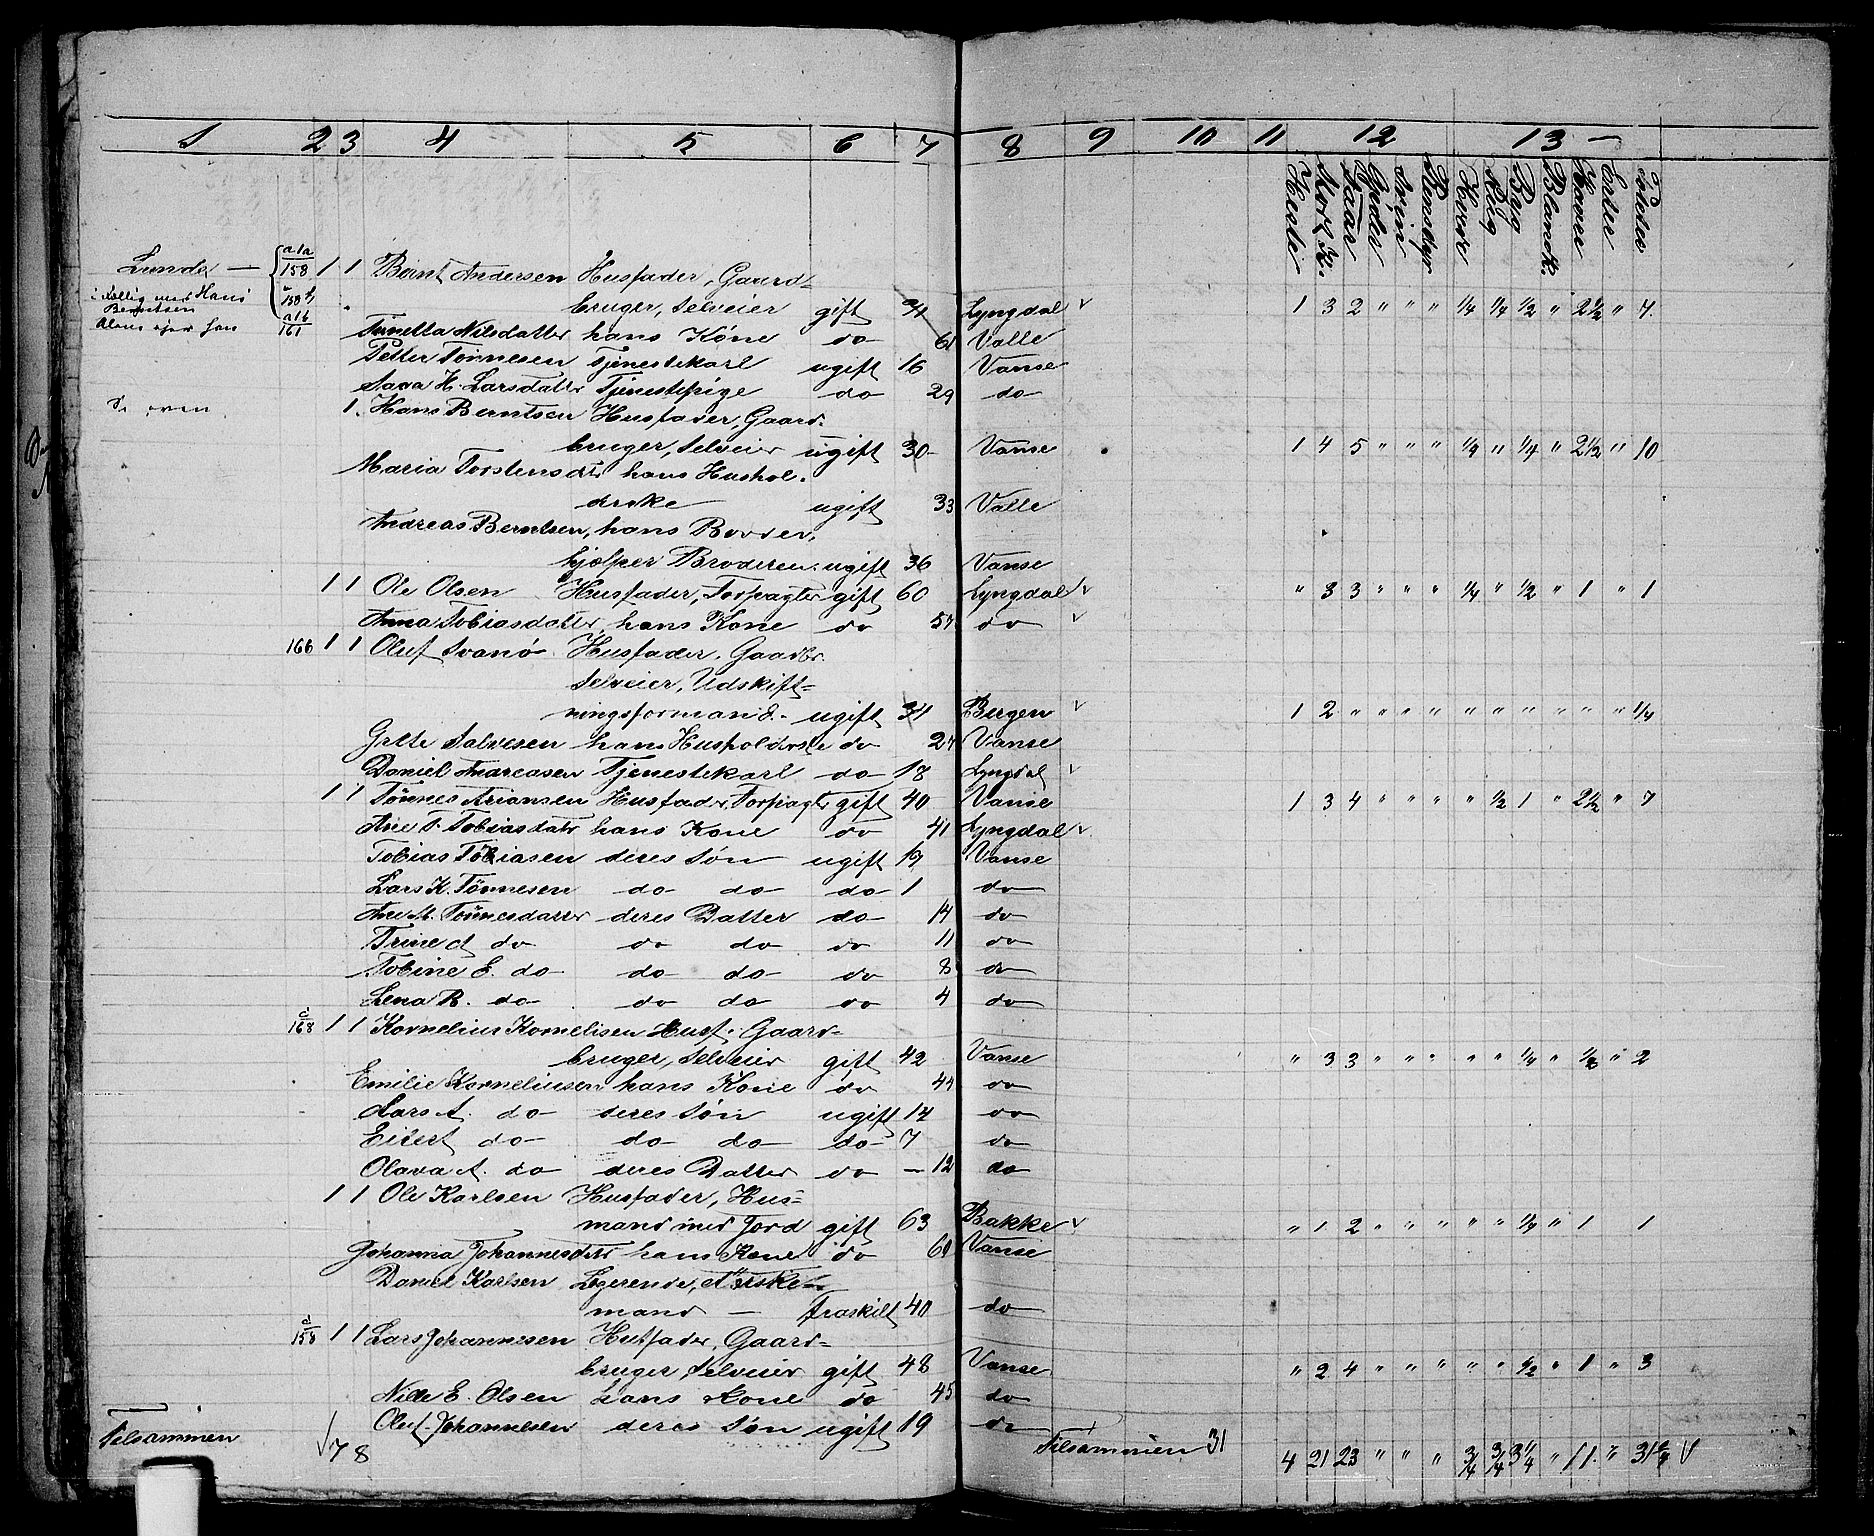 1 2 3 4 5 6 7 8 9 10 11 12 13
Heste Stort K. Faar Gjeder Svin Rensdyr Hvede Rug Byg Blandk. Havre Erter Poteter
Lunde — a1a 158 1 1 Bernt Andersen Husfader, Gaard-
i Fællig med Hans Berntsen 158 b
bruger, Selveier gift 71 Lyngdal 1 3 2 " " " 1/4 1/4 1/2 " 2 1/2 " 7
a1b 161
Tonetta Nilsdatter hans Kone do 61 Valle
Petter Tönnesen Tjenestekarl ugift 16 Vanse
H. Larsdatter Tjenestepige do 29 do
oven 1 Hans Berntsen Husfader, Gaard-
bruger, Selveier ugift 30 Vanse 1 4 5 " " " 1/4 " 1/4 " 2 1/2 " 10
Maria Torstensdtr hans Hushol-
derske ugift 33 Valle
Andreas Berntsen, hans Broder,
hjælper Broderen ugift 36 Vanse
1 1 Ole Olsen Husfader, Forpagter gift 60 Lyngdal " 3 3 " " " 1/4 " 1/2 " 1 " 1
Anna Tobiasdatter hans Kone do 57 do
166 1 1 Oluf Svanö Husfader, Gaardbr.
Selveier, Udskift-
ningsformand ugift 31 Bergen 1 2 " " " " " " " " " " 1/4
Grete Salvesen hans Husholderske do 27 Vanse
Daniel Andreasen Tjenestekarl do 18 Lyngdal
1 1 Tönnes Ariansen Husfader, Forpagter gift 40 Vanse 1 3 4 " " " " 1/2 1 " 2 1/2 " 7
Ane T. Tobiasdatr hans Kone do 41 Lyngdal
Tobias Tobiasen deres Søn ugift 19 Vanse
Lars K. Tönnesen do do do 1 do
Ane M. Tönnesdatter deres Datter do 14 do
Trine A do do do do 11 do
Tobine E. do do do do 8 do
Lena R. do do do do 4 do
c 168 1 1 Kornelius Kornelisen Husf. Gaard-
bruger, Selveier gift 42 Vanse " 3 3 " " " " " 1/4 " 1/2 " 2
Emilie Korneliusen hans Kone do 44 do
Lars A. do deres Søn ugift 14 do
Eilert do do do do 7 do
Olava A. do deres Datter do 12 do
1 1 Ole Karlsen Husfader, Hus-
mand med Jord gift 63 Bakke " 1 2 " " " " " 1/4 " 1 1
Johanna Johannesdtr hans Kone do 61 Vanse
Daniel Karlsen Logerende,
mand — fraskilt 40 do
d 158 1 1 Lars Johannesen Husfader, Gaard-
bruger, Selveier gift 48 Vanse " 2 4 " " " " " 1/2 " 1 " 3
E. Olsen hans Kone do 45 do
Oluf Johannesen deres Søn ugift 19 do
Tilsammen 7 8 Tilsammen 31 4 21 23 " " " 3/4 3/4 3 1/4 " 11 " 31 1/4